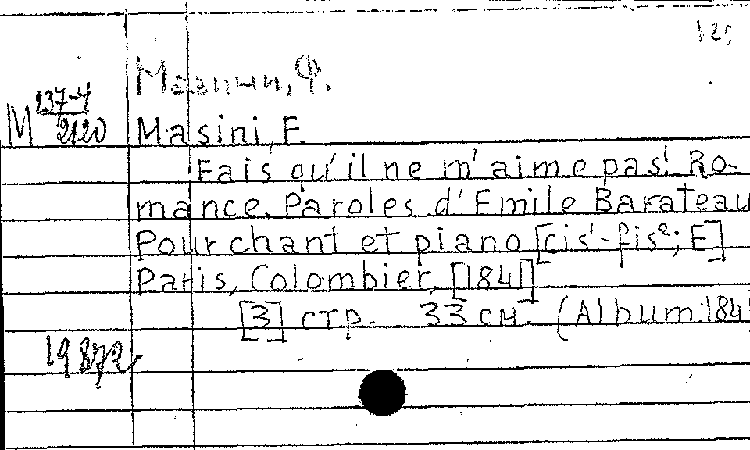 Мазини, Ф.
M 137-4/2120
Masini, F.
Fais qu'il ne m'aime pas! Ro-
mance. Paroles d'Emile Barateau
Pour chant et piano [cis¹-fis²; E]
Paris, Colombier, [1841]
[3] стр. 33 см. (Album 184
19872